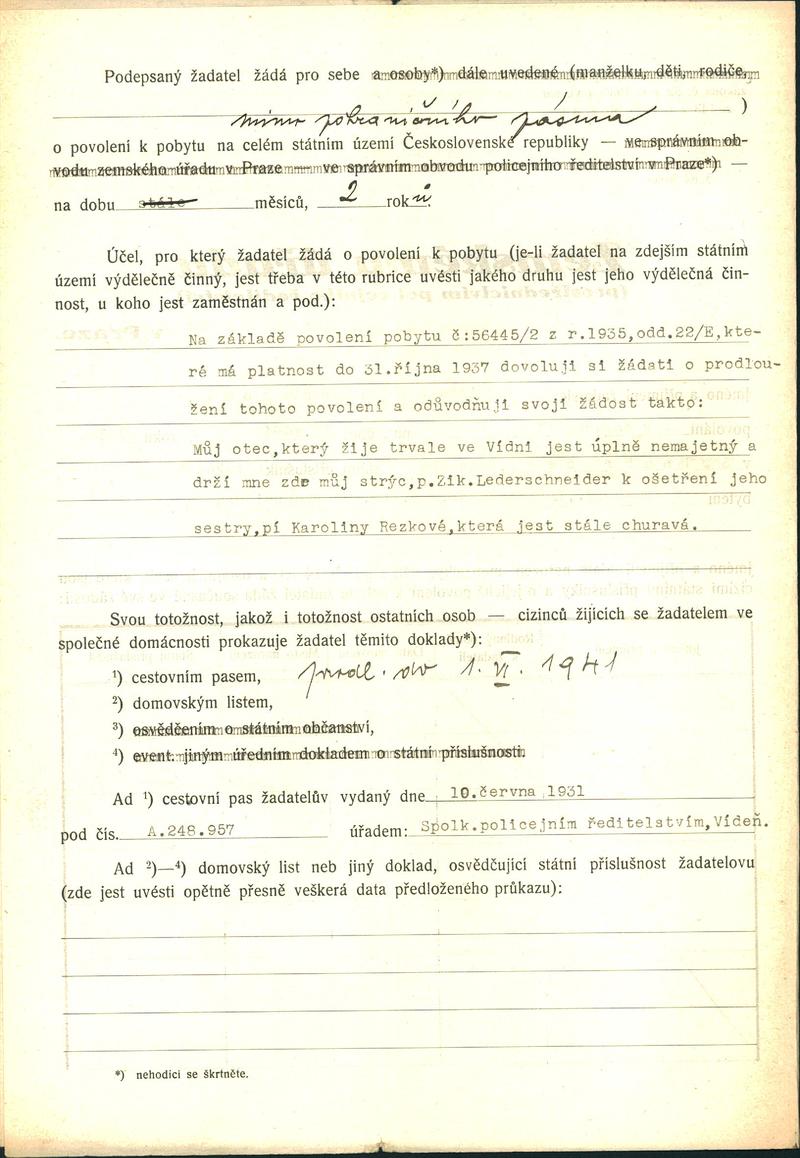 Podepsaný žadatel žádá pro sebe a osoby*) dále uvedené (manželku, děti, rodiče,
)
mimo pohraničního pásma
o povolení k pobytu na celém státním území Československé republiky — ve správním ob-
vodu zemského úřadu v Praze — ve správním obvodu policejního ředitelství v Praze*) —
na dobu stále měsíců, 2 roků.
Účel, pro který žadatel žádá o povolení k pobytu (je-li žadatel na zdejším státním
území výdělečně činný, jest třeba v této rubrice uvésti jakého druhu jest jeho výdělečná čin-
nost, u koho jest zaměstnán a pod.):
Na základě povolení pobytu č:56445/2 z r.1935,odd.22/E,kte-
ré má platnost do 31.října 1937 dovoluji si žádati o prodlou-
žení tohoto povolení a odůvodňuji svoji žádost takto:
Můj otec,který žije trvale ve Vídni jest úplně nemajetný a
drží mne zde můj strýc,p.Zik.Lederschneider k ošetření jeho
sestry,pí Karoliny Rezkové,která jest stále churavá.
Svou totožnost, jakož i totožnost ostatních osob — cizinců žijících se žadatelem ve
společné domácnosti prokazuje žadatel těmito doklady*):
¹) cestovním pasem, prodl. do 1. VI. 1941
²) domovským listem,
³) osvědčením o státním občanství,
⁴) event. jiným úředním dokladem o státní příslušnosti.
Ad ¹) cestovní pas žadatelův vydaný dne 10.června 1931
pod čís. A.248.957 úřadem: Spolk.policejním ředitelstvím,Vídeň.
Ad ²)—⁴) domovský list neb jiný doklad, osvědčující státní příslušnost žadatelovu
(zde jest uvésti opětně přesně veškerá data předloženého průkazu):
*) nehodící se škrtněte.